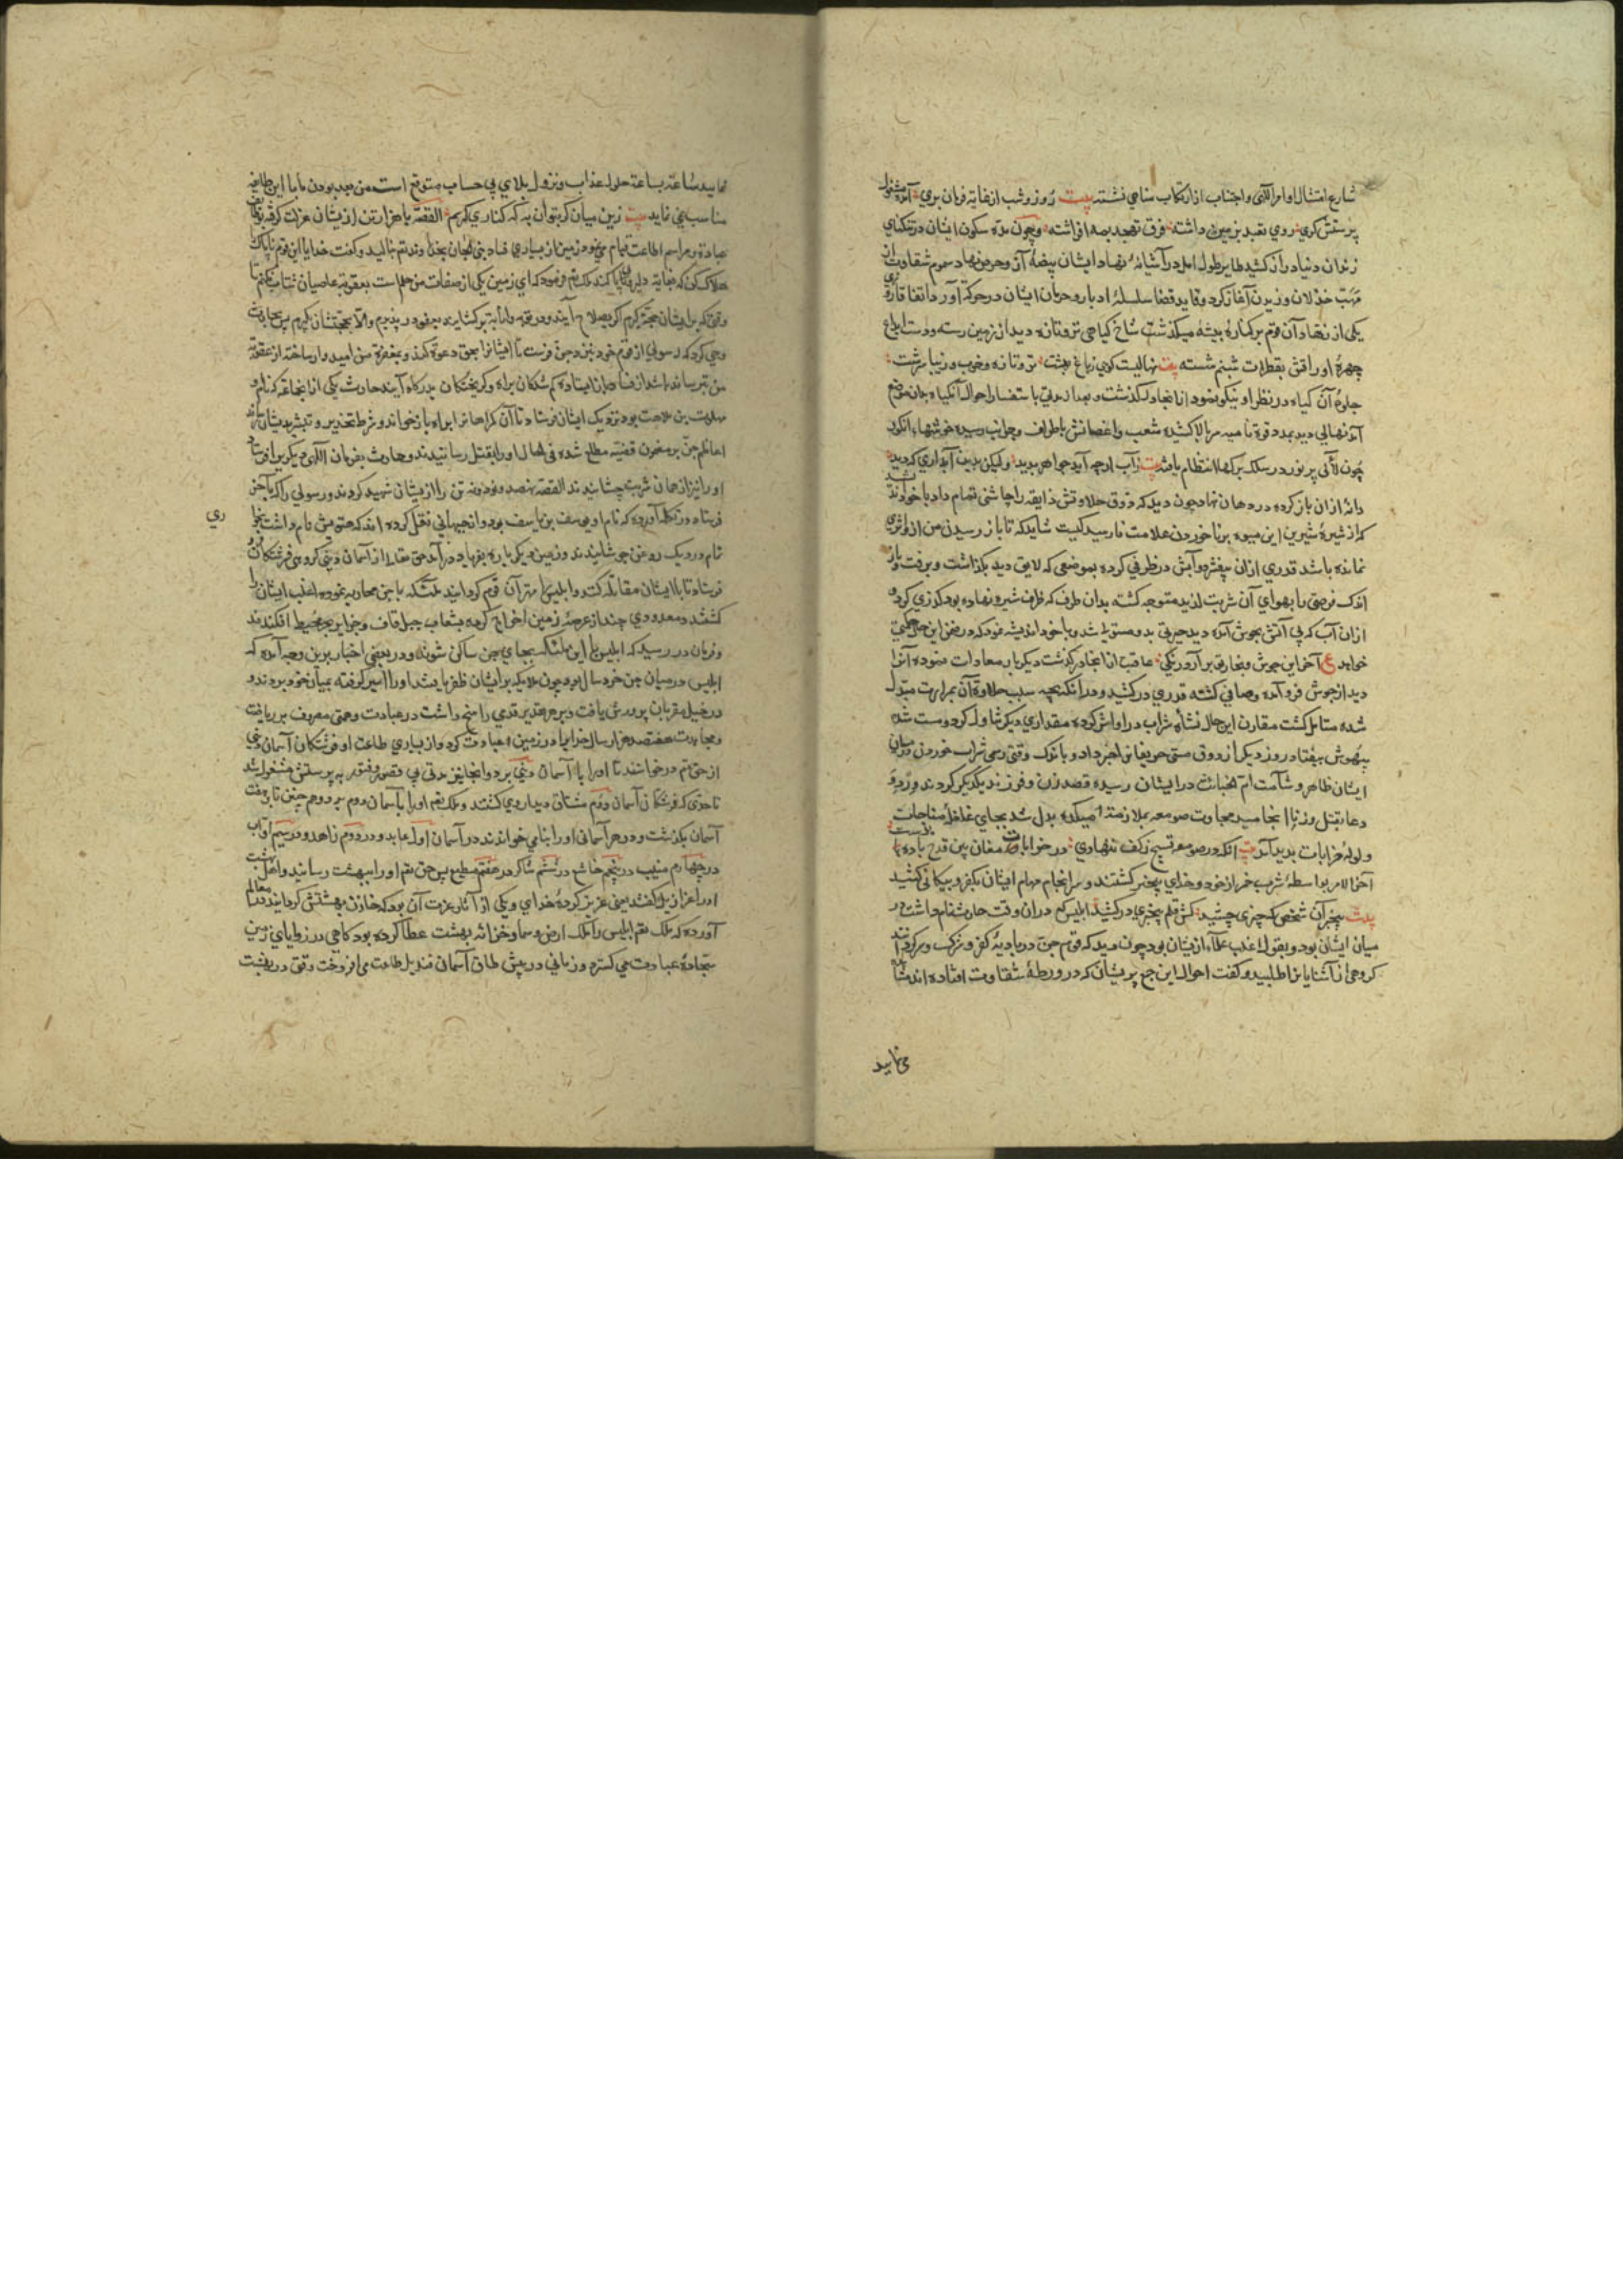 شارع امتثال اوامر الٓهی و اجتناب از ارتکاب مناهی نشسته بیت روز و شب از غایة فرمان بری آمده مشغول
پرستش کری روی تعبد بزمین داشته فرق تهجد بصد افراشته و چون مدة سکون ایشان در تنکنای
زندان دنیا دراز کشید طایر طول امل در آشیانهٔ نهاد ایشان بیضهٔ آز و حرص نهاد سموم شقاوت از
مهب خذلان وزیدن آغاز کرد و قاید قضا سلسلهٔ ادبار و حرمان ایشان در حرکة آورد اتفاقا روزی
یکی از زهاد آن قوم بر کنارهٔ بیشه میکذشت شاخ کیاهی تر و تازه دید از زمین رسته و دست ابداع
چهرهٔ اوراقش بقطرات شبنم شسته بیت نهالیست کویی ز باغ بهشت تر و تازه و خوب و زیبا سرشت
جلوهٔ آن کیاه در نظر او نیکو نمود از انجا در کذشت و بعد از مدتی باستفسار احوال آن کیاه بدان موضع
آمد نهالی دید بمدد قوة نامیه سر بالا کشیده شعب و اغصانش باطراف و جوانب رسیده خوشهاء انکور
چون لآلی پر نور در سلک برکها انتظام یافته بیت ز آب ارچه آید جواهر پدید ولیکن بدین آبداری که دید
دانهٔ از ان باز کرده در دهان نهاد چون دید که ذوق حلاوتش ذایقه را چاشنی تمام داد با خود اندیشید
که از شیرهٔ شیرین این میوه برنا خوردن علامت نارسیدکیست شاید که تا باز رسیدن من از او اثری
نمانده باشد قدری ازان بیفشرد و آبش در ظرفی کرده بموضعی که لایق دید بکذاشت و برفت و باز
اندک فرصتی را بهوای آن شربت لذید متوجه کشته بدان طرف که ظرف شیره نهاده بود کذری کرد
ازان آب که بی آتش بجوش آمده دید حیرتی بدو مستولی شد و با خود اندیشه نمود که در ضمن این حال حکمتی
خواهد ع آخر این جوش و بخار تو بر آرد رنکی عاقبت از انجا در کذشت دیکر بار معاودت نموده آنرا
دید از جوش فرو آمده و صافی کشته قدری در کشید و در انکه بچه سبب حلاوة آن بمرارت مبدل
شده متامل کشت مقارن این حال نشأهٔ شراب در او اثر کرده مقداری دیکر تناول کرد و مست شده
بیهوش بیفتاد روز دیکر از ذوق مستی حریفانرا خبر داد و باندک وقتی رسم شراب خوردن در میان
ایشان ظاهر و شآمت ام الخبائث در ایشان رسیده قصد زن و فرزند یکدیکر کردند و زهد و
دعا بقتل و زنا انجامید مجاورت صومعه بملازمة میکده بدل شد بجای غلغلهٔ مناجات
ولولهٔ خرابات پدید آمد بیت آنکه در صومعه تسبیح ز کف ننهادی در خرابات مغان بین قدح باده بدست
آخر الامر بواسطهٔ شرب خمر از خود و خدای بیخبر کشتند و سرانجام مهام ایشان بکفر و بیکانکی کشید
بیت بیخبر آن شخص که چیزی چشید کش قلم بیخبری در کشید ابلیس که دران وقت حارث نام داشت در
میان ایشان بود و بقول اغلب علماء ازیشان بود چون دید که قوم جن در بادیهٔ کفر و شرک سر کردانند
کروهی از آشنایانرا طلبید و کفت احوال این جمع پریشان که در ورطهٔ شقاوت افتاده اند مشاهده
می نماید
نمایید ساعة بساعة حلول عذاب و نزول بلای بی حساب متوقع است من بعد بودن ما با این طایفه
مناسب نمی نماید بیت زین میان کر بتوان به که کناری کیریم القصه با هزار تن ازیشان عزلت کرفته
عبادة و مراسم اطاعت قیام می نمود زمین از بسیاری فساد بنی الجان بخداوند تعالی بنالید و کفت خدایا این قوم ناپاک
هلاک کن که بغایة دلیر و بی باکند ملک تعالی فرمود که ای زمین یکی از صفات من حلم است بعقوبة عاصیان شتاب نکنم تا
وقتی که بر ایشان حجة کیرم اکر بصلاح آیند و در توبه و انابة بر کشایند بعفو در پذیرم والا بحجتشان بکیرم پس حق تعالی
وحی کرد که رسولی از قوم خود بنزد جن فرست تا ایشانرا بحق دعوة کند و بمغفرة من امیدوار ساخته از عقوبة
من بترساند باشد از
سلهب بن بود نزدیک ایشان فرستاد تا آن کمراهانرا براه باز خواند و شرط تحذیر و تبشیر بدیشان رساند
اعاظم جن بر مضمون قضیه مطلع شده فی الحال او را بقتل رسانیدند و حارث بفرمان الٓهی دیکریرا فرستاد
او را نیز از همان شربت چشانیدند القصه نهصد و نود و نه تن را ازیشان شهید کردند و رسولی را که بآخر
فرستاد در تکمله آورده که نام او یوسف بن یاسف بود و از جیهانی نقل کرده اند که
تمام در دیک روغن جوشانیدند و زمین دیکر باره بفریاد در آمد حق تعالی از آسمان دنیی کروهی فرشتکان
فرستاد تا با ایشان مقاتله کنند و ابلیس را مهتر آن قوم کردانید ملئکه با جن محاربه نموده اغلب ایشان را
کشتند و معدودی چند از عرصهٔ زمین اخراج کرده بشعاب جبل قاف و جزایر بحر محیط افکندند
و فرمان در رسید که ابلیس با این ملئکه بجای جن ساکن شوند و در بعضی اخبار برین وجه آمده که
ابلیس در میان جن خرد سال بود چون ملایکه بر ایشان ظفر یافتند او را اسیر کرفته بمیان خود بردند و
در خیل مقربان پرورش یافت و بر جادهٔ قدمی راسخ داشت در عبادت و همتی مصروف بر ریاضت
و مجاهدت هفتصد هزار سال خدایرا در زمین عبادت کرد و از بسیاری طاعت او فرشتکان آسمان دنیی
از حق تعالی درخواستند تا او را بآسمان دنیی برد و انجا نیز مدتی بی قصور و فتور به پرستش مشغول شد
تا حدی که فرشتکان آسمان دوم مشتاق دیدار وی کشتند و ملک تعالی او را بآسمان دوم برد و هم چنین تا بهفت
آسمان بکذشت و در هر آسمانی او را بنامی خواندند در آسمان اول عابد و در دوم زاهد و در سیم اواب
در چهارم منیب در پنجم خاشع در ششم شاکر در هفتم مطیع پس حق تعالی او را ببهشت رسانید و اهل بهشت
او را عزازیل کفتند یعنی عزیز کردهٔ خدای و یکی از آثار عزت آن بود که خازن بهشتش کردانیدند
آورده که ملک تعالی ابلیس را ملک ارض و سما و خزانهٔ بهشت عطا کرده بود کاهی در زوایای زمین
سجادهٔ عبادت می کسترد و زمانی در پیش طاق آسمان قندیل طاعت می افروخت وقتی در بهشت
ری